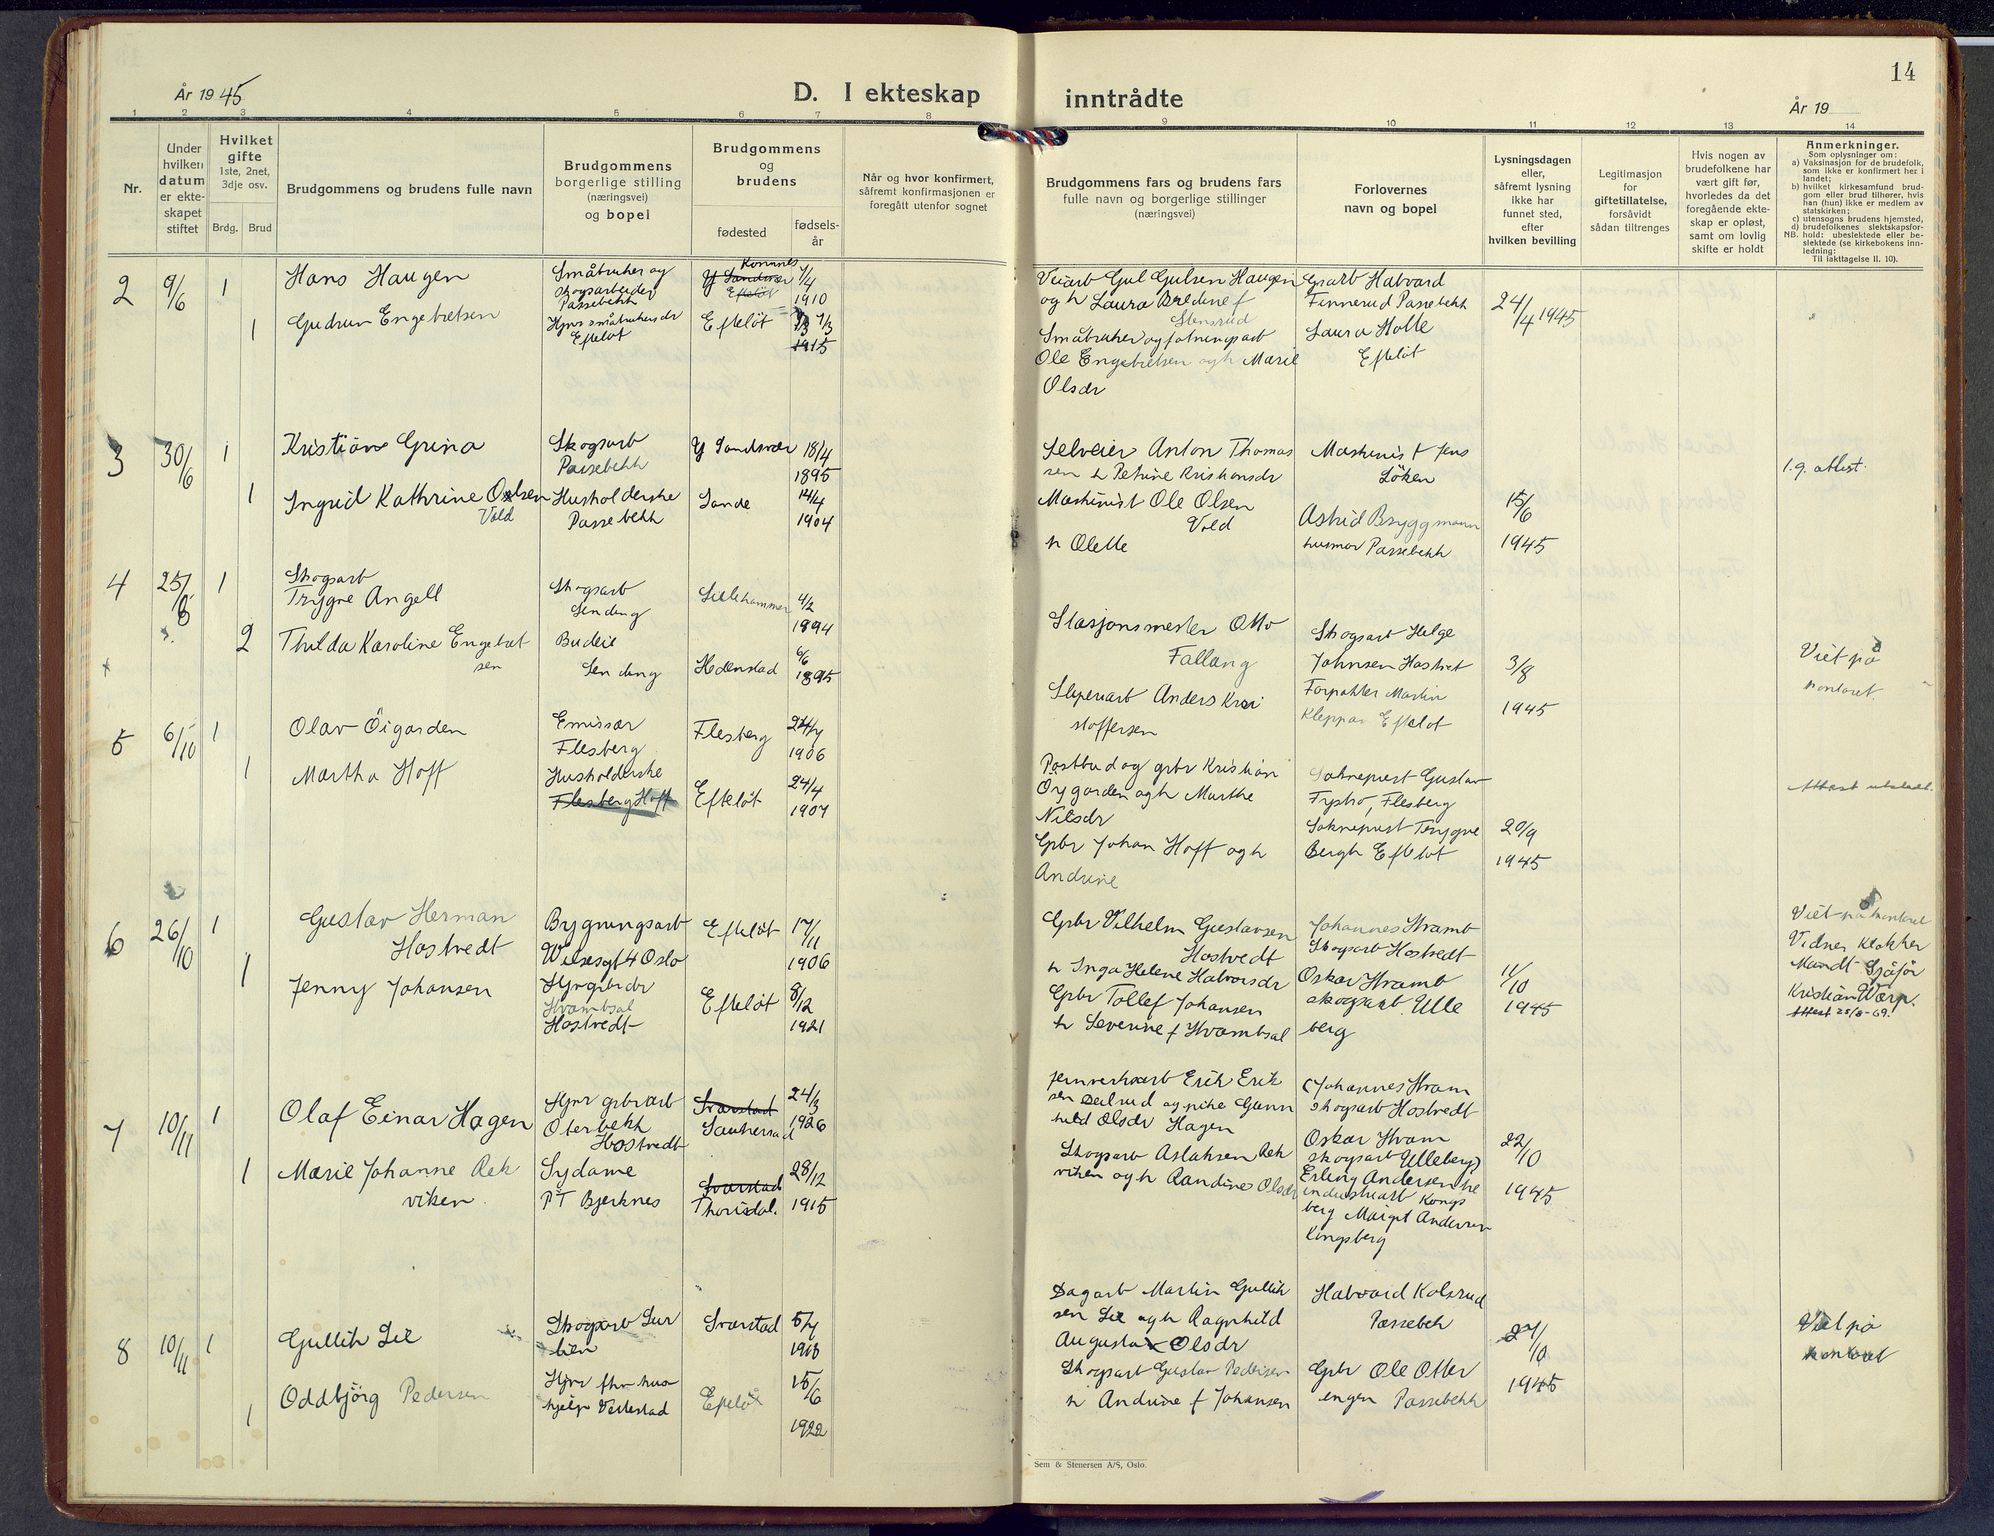 År 1945
D. I ekteskap inntrådte
År 19
14
1 2 3 4 5 6 7 8 9 10 11 12 13 14
Nr.
Under hvilken datum er ekteskapet stiftet
Hvilket gifte
1ste, 2net, 3dje osv.
Brdg. Brud
Brudgommens og brudens fulle navn
Brudgommens borgerlige stilling (næringsvei) og bopel
Brudgommens og brudens
fødested
fødselsår
Når og hvor konfirmert, såfremt konfirmasjonen er foregått utenfor sognet
Brudgommens fars og brudens fars fulle navn og borgerlige stillinger (næringsvei)
Forlovernes navn og bopel
Lysningsdagen eller, såfremt lysning ikke har funnet sted, efter hvilken bevilling
Legitimasjon for giftetillatelse, forsåvidt sådan tiltrenges
Hvis nogen av brudefolkene har vært gift før, hvorledes da det foregående ekteskap er opløst, samt om lovlig skifte er holdt
Anmerkninger.
Som oplysninger om:
a) Vaksinasjon for de brudefolk, som ikke er konfirmert her i landet;
b) hvilket kirkesamfund brudgom eller brud tilhører, hvis han (hun) ikke er medlem av statskirken;
c) utensogns brudens hjemsted,
d) brudefolkenes slektskapsforhold: ubeslektede eller beslektede (se kirkebokens innledning:
NB. Til iakttagelse II. 10).
2 9/6 1 Hans Haugen
Småbruker og skogsarbeider Passebekk
Komnes Y Sandsvær Efteløt
7/4 1910
Veiarb Gul Gulsen Haugen og h Laura Bredine f Stensrud
Grarb Halvard Finnerud Passebekk
24/4 1945
1 Gudrun Engebretsen
Hjvs småbrukersdr Efteløt
Efteløt
7/3 1915
Småbruker og fløtningsarb Ole Engebretsen og h Marie Olsdr
Laura Holte Efteløt
3 30/6 1 Kristian Grina
Skogsarb Passebekk
Y Sandsvær
18/4 1895
Selveier Anton Thomassen h Petrine Kristiansdr
Maskinist Jens Löken
1.g. attest.
1 Ingrid Kathrine Olsen Vold
Husholderske Passebekk
Sande
14/4 1904
Maskinist Ole Olsen Vold h Olette
Astrid Bryggmann husmor Passebekk
15/6 1945
4 25/8 1 Skogsarb Trygve Angell
Skogsarb Sending
Lillehammer
4/2 1894
Stasjonsmester Otto Fallang
Skogsarb Helge Johnsen Hostvet
3/8 1945
Viet på kontoret
2 Thilda Karoline Engebretsen
Budeie Sending
Hedenstad
6/6 1895
Sliperiarb Anders Kristoffersen
Forpakter Martin Kleppan Efteløt
5 6/10 1 Olav Öigarden
Emissær Flesberg
Flesberg
24/7 1906
Postbud og grbr Kristian Öygarden og h Marthe Nilsdr
Sokneprest Gustav Frysho, Flesberg
Attest utstedt.
1 Martha Hoff
Husholderske Flesberg Hoff
Efteløt
24/4 1907
Grbr Johan Hoff og h Andrine
Sokneprest Trygve Bergh Efteløt
20/9 1945
6 26/10 1 Gustav Herman Hostvedt
Bygningsarb Wilsesgt 4 Oslo
Efteløt
17/11 1906
Grbr Vilhelm Gustavsen Hostvedt h Inga Helene Halvorsdr
Johannes Hvamb Skogsarb Hostvedt
11/10 1945
Viet på kontoret
Vidner Klokker Mandt Sjåfør Kristian Wærp.
Attest 25/8-69.
1 Jenny Johansen
Hjv grbrdr Hvambsal Hostvedt
Efteløt
8/12 1921
Grbr Tollef Johansen h Severine f Hvambsal
Oskar Hvamb skogsarb. Ulleberg
7 10/11 1 Olaf Einar Hagen
Hjv grbrarb Oterbekk Hostvedt
Svarstad Sauherad
24/3 1926
Jernverksarb Erik Eriksen Deilrud og pike Gunnhild Olsdr Hagen
(Johannes Hvam skogsarb Hostvedt
Oskar Hvam skogsarb Ulleberg)
22/10 1945
1 Marie Johanne Rekviken
Sydame PT Bjerknes
Svarstad Thorsdal.
28/12 1915
Skogsarb Aslaksen Rekviken og h Randine Olsdr
Erling Andersen industriarb Kongsberg Margit Andersen Kongsberg
8 10/11 1 Gullik Lie
Skogsarb Surlien
Svarstad
5/7 1913
Dagarb Martin Gulliksen Lie og h Ragnhild Augusta Olsdr
Halvard Kolsrud Passebekk
27/10 1945
Viet på kontoret
1 Oddbjörg Pedersen
Hjv fhv hushjelp Vestestad
Efteløt
15/6 1922
Skogsarb Gustav Pedersen h Andrine f Johansen
Grbr Ole Otterengen Passebekk
Sem & Stenersen A/S, Oslo.